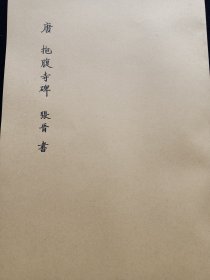 唐 抱腹寺碑 張胄 書